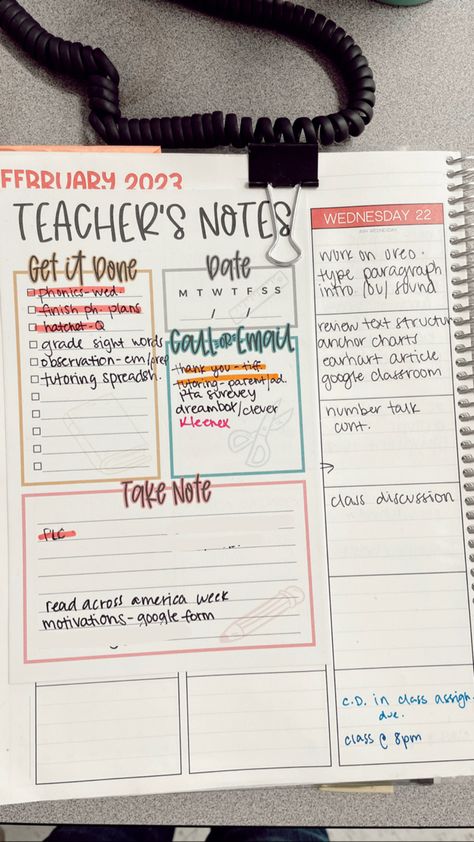 FEBRUARY 2023
TEACHER'S NOTES
Get it Done
phonics-wed.
finish ph. plans
hatchet-Q
grade sight words
observation-em/prep
tutoring spreadsh.
Date
M T W T F S S
/ /
Call or Email
thank you - tiff.
tutoring-parent/ad.
pta survey
dreambox/clever
Kleenex
Take Note
PLC
read across america week
motivations-google form
WEDNESDAY 22
ASH WEDNESDAY
work on oreo.
type paragraph
intro /ou/ sound
review text structure
anchor charts
earhart article
google classroom
number talk
cont.
class discussion
C.D. in class assign.
due.
class @ 8pm